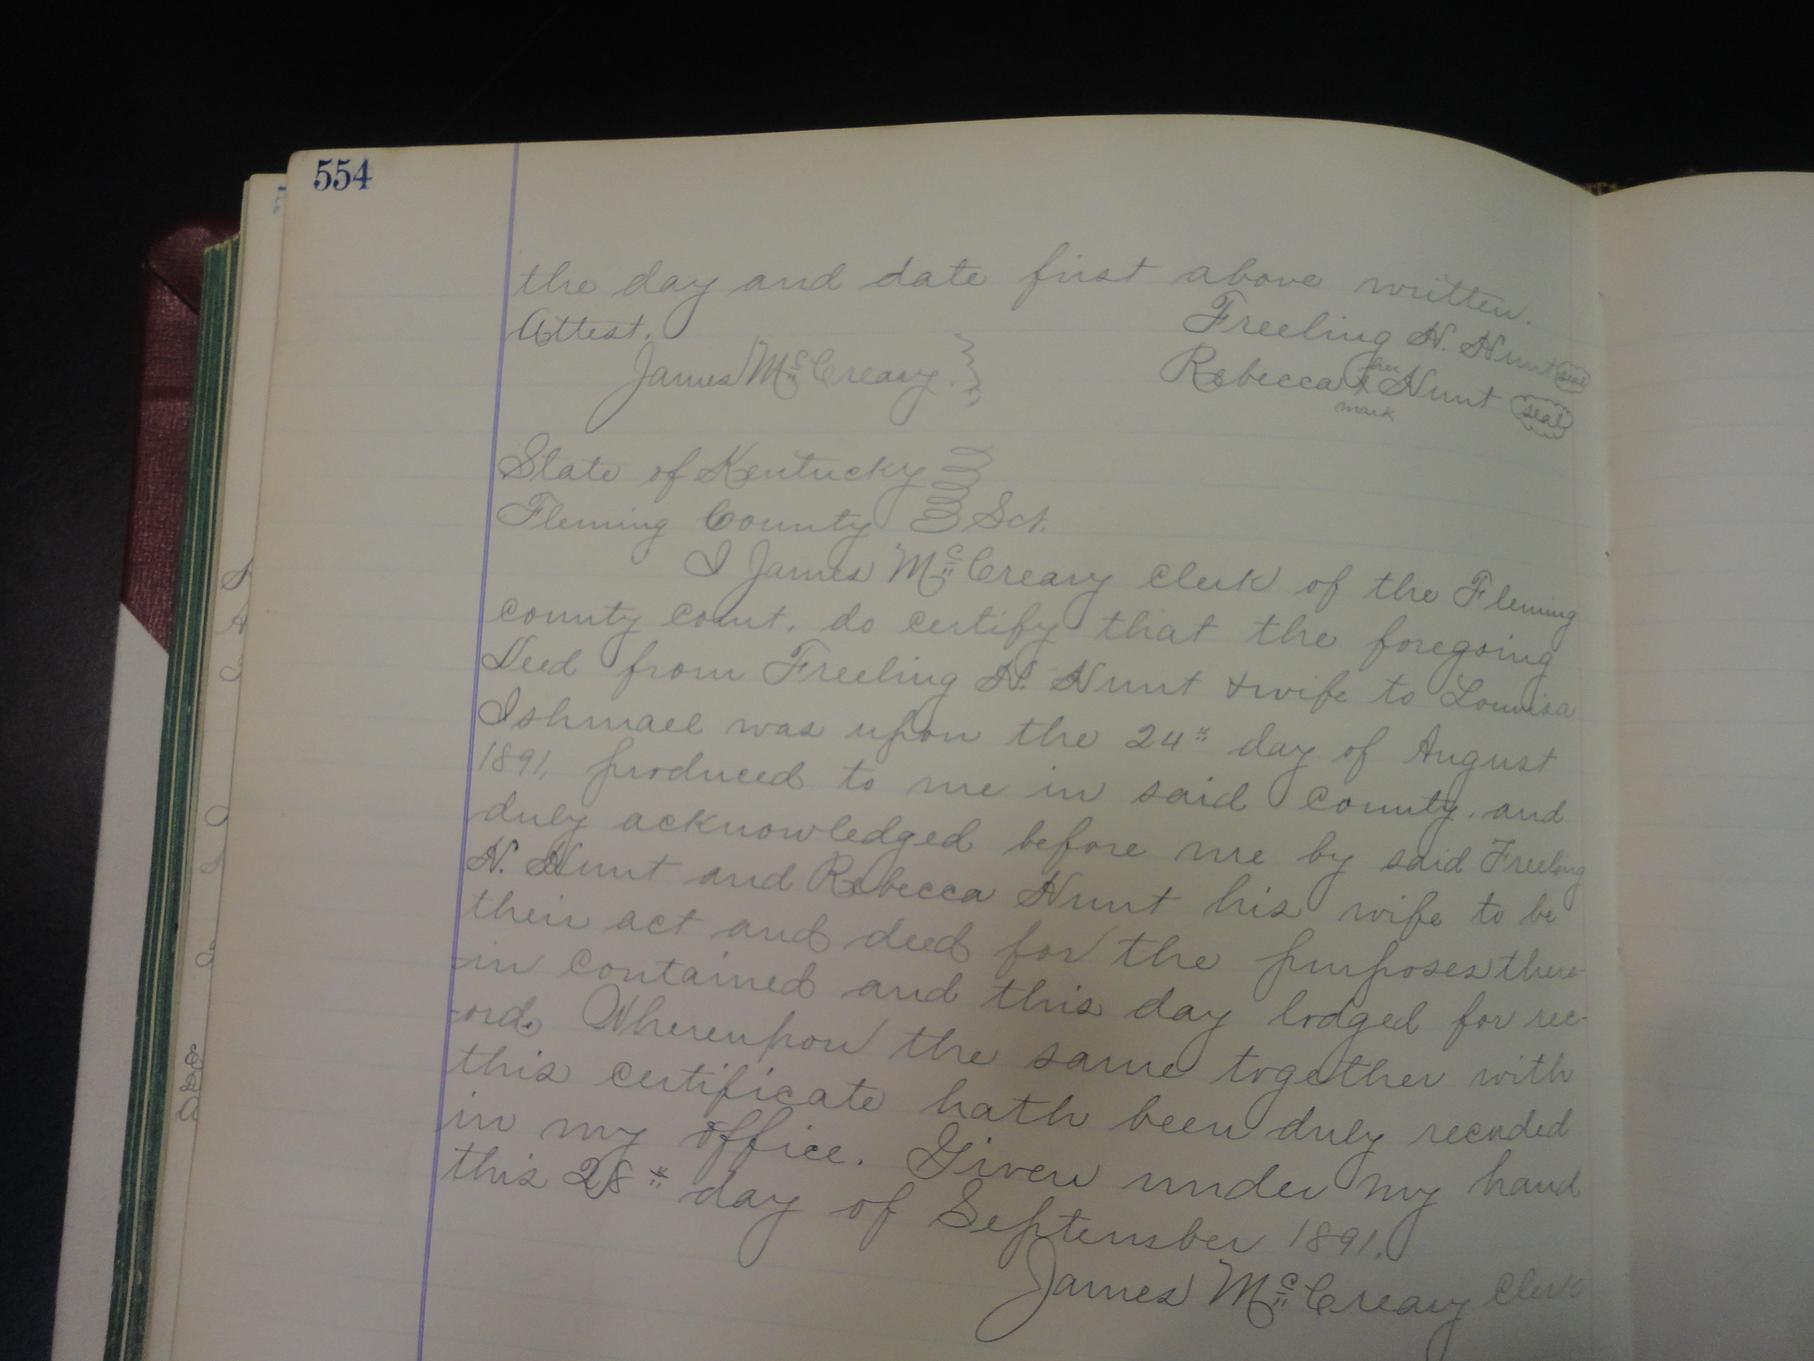 554
the day and date first above written.
Attest. Freeling H. Hunt (seal)
James McCreary Rebecca her x mark Hunt (seal)
State of Kentucky
Fleming County Sct.
I James McCreary clerk of the Fleming
county court, do certify that the foregoing
Deed from Freeling H. Hunt & wife to Louvisa
Ishmael was upon the 24th day of August
1891, produced to me in said county, and
duly acknowledged before me by said Freeling
H. Hunt and Rebecca Hunt his wife to be
their act and deed for the purposes there-
-in contained and this day lodged for rec-
-ord. Whereupon the same together with
this certificate hath been duly recorded
in my office. Given under my hand
this 28th day of September 1891.
James McCreary Clerk